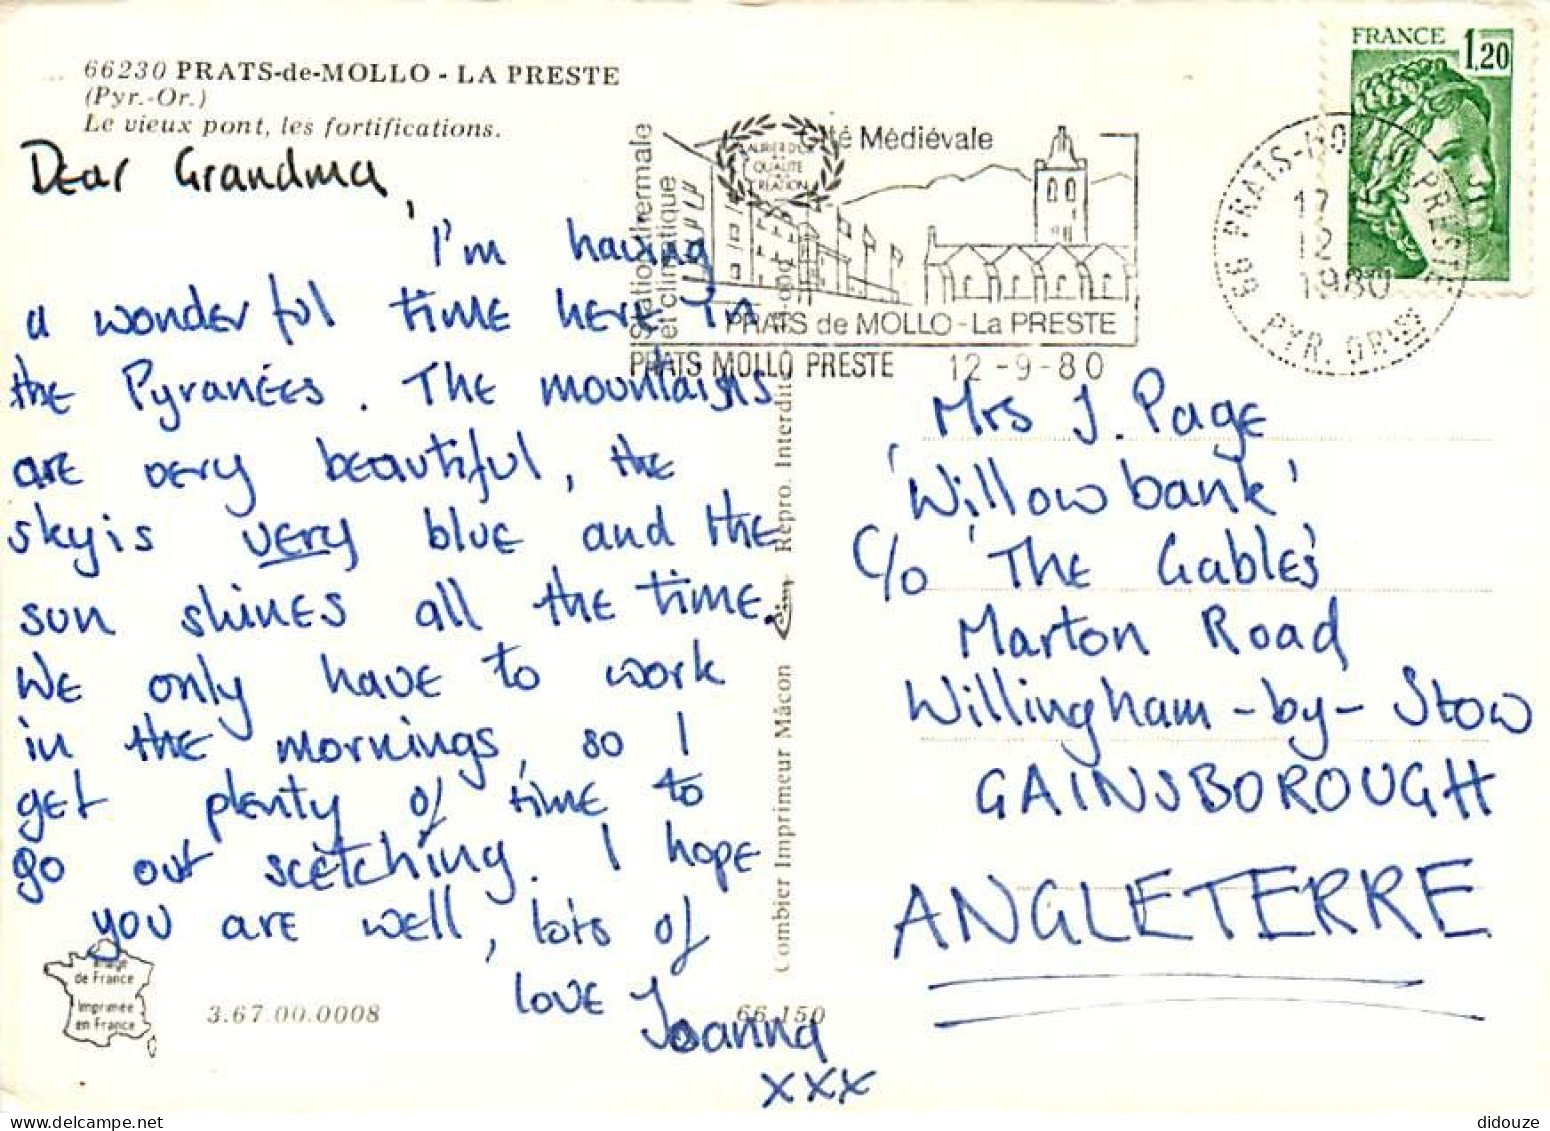 66230 PRATS-de-MOLLO - LA PRESTE
(Pyr.-Or.)
Le vieux pont, les fortifications.
Dear Grandma,
I'm having
a wonderful time here in
the Pyranées. The mountains
are very beautiful, the
sky is very blue and the
sun shines all the time.
We only have to work
in the mornings, so I
get plenty of time to
go out scetching. I hope
you are well, lots of
love Joanna
xxx
Image
de France
Imprimée
en France
3.67.00.0008
66.150
Combier Imprimeur Mâcon
Repro. Interdite
Station thermale
et climatique
Cité Médiévale
LAURIER D'OR
QUALITÉ
CRÉATION
PRATS de MOLLO - La PRESTE
PRATS MOLLO PRESTE 12-9-80
FRANCE 1,20
66 PRATS-MO PRESTE
17
12-
1980
PYR. OR
Mrs J. Page
'Willowbank'
C/o 'The Gables'
Marton Road
Willingham-by-Stow
GAINSBOROUGH
ANGLETERRE
didouze